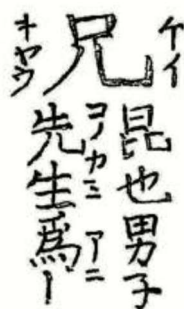 ケイ
兄
キヤウ
昆也男子
コノカミ アニ
先生爲｜